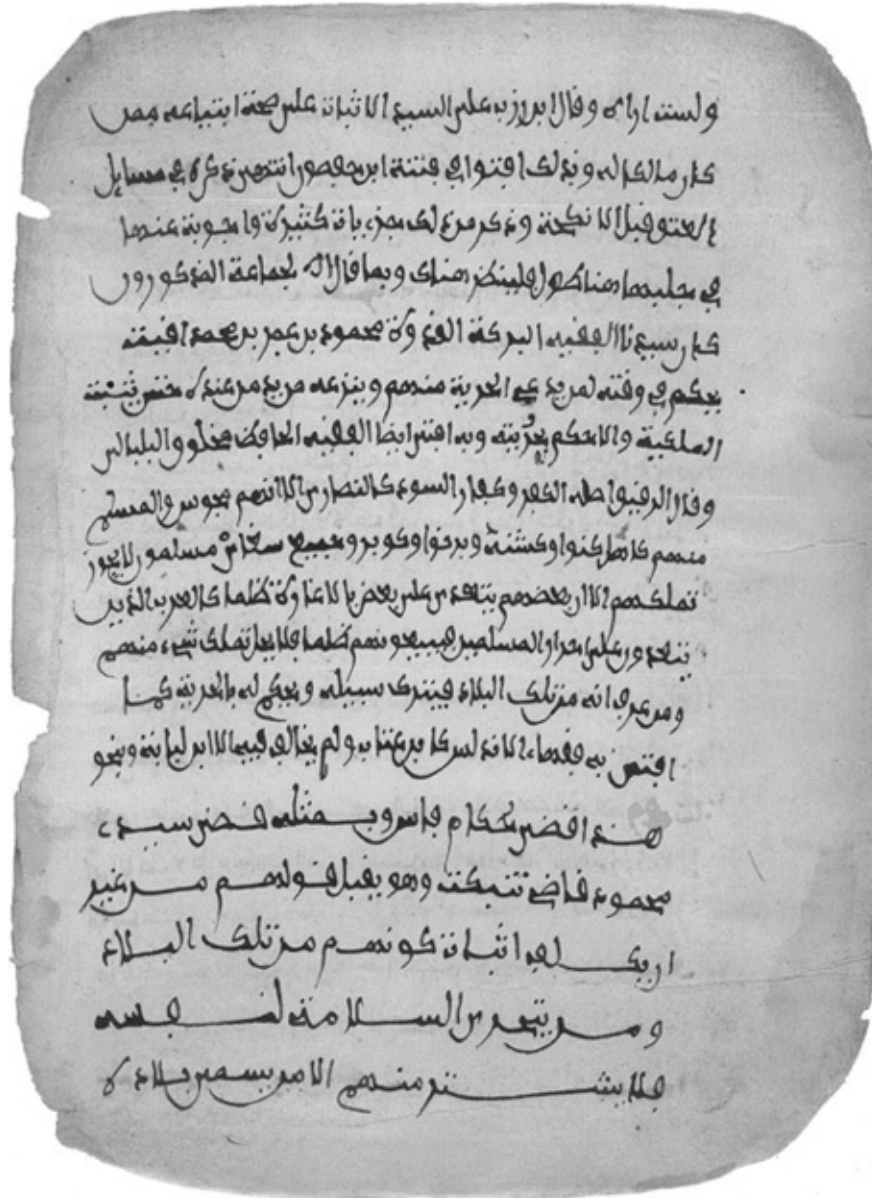 ولست اراه وقال ابن زرب على السيد الاثبات على صحة ابتياعه ممن
كان مالكا له وبذلك افتوا في فتنة ابن حفصون انتهى ذكره في مسايل
العتق قبل الانكحة وذكر من ذلك جزءيات كثيرة واجوبة عندها
في جلبها هنا طول فلينظر هناك وبما قال الجماعة المذكورون
كان سيدنا الفقيه البركة القدوة محمود بن عمر بن محمد اقيت
يحكم في وقته لمن يدعي الحرية منهم وينزعه من يد من عنده حتى يثبت
الملكية والا حكم بحريته وبه افتى ايضا الفقيه الحافظ مخلوف البلبالي
وقال الرقيق اصله الكفر وكفار السودان كالنصارى الا انهم مجوس والمسلم
منهم كاهل كنوا وكشنة وبرنوا وكوبر وجميع سغاي مسلمون لا يجوز
تملكهم الا ان بعضهم يتعدى على بعض بالاغارة ظلما كالعرب الذين
يتعدون على احرار المسلمين فيبيعونهم ظلما فلا يحل تملك شيء منهم
ومن عرف انه من تلك البلاد فيترك سبيله ويحكم له بالحرية كما
افتى به فقهاء الاندلس كابن عتاب ولم يخالف فيه الا ابن لبابة وبنحو
هذا قضى حكام فاس وبمثله قضى سيدي
محمود قاضي تنبكت وهو يقبل قولهم من غير
ان يكلفه اثبات كونهم من تلك البلاد
ومن يتحرى السلامة لنفسه
فلا يشتر منهم الا من يسمى بلاده